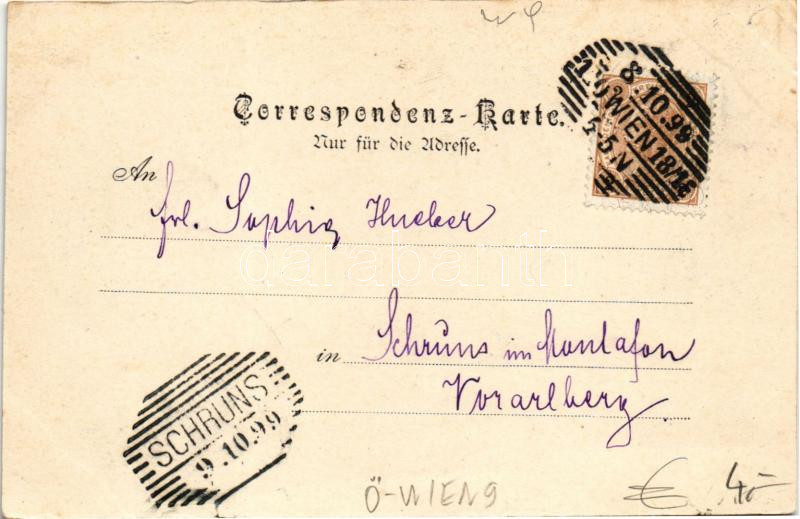 Correspondenz-Karte.
Nur für die Adresse.
An
Frl. Sophie Hueber
in Schruns im Montafon
Vorarlberg.
8.10.99
WIEN 18/1
4-5.N
SCHRUNS
9.10.99
Ö-WIEN 9
€ 40-
darabanth